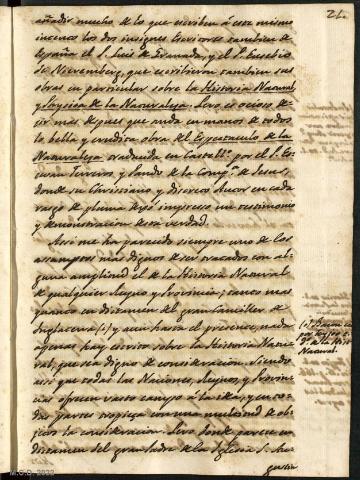 21.
añadir mucho de lo que escriben á este mismo
intento los dos insignes Escritores tambien de
España el P. Luis de Granada, y el P. Eusebio
de Nieremberg, que escribieron tambien sus
obras en particular sobre la Historia Natural,
y Physica de la Naturaleza. Pero es ocioso de-
cir mas despues que anda en manos de todos
la bella y erudita obra del Espectaculo de la
Naturaleza traducida en Castellº. por el P. Es-
tevan Terreros y Pando de la Compª. de Jesus,
donde su Christiano y discreto Autor en cada
rasgo de pluma dejó impresso un testimonio
y demonstracion de esta verdad.
Assi me ha parecido siempre uno de los
assumptos mas dignos de ser tratados con al-
guna amplitud el de la Historia Natural
de qualquier Reyno y Provincia; tanto mas
quanto en dictamen del gran Canciller de
Inglaterra (1) y aun hasta el presente, nada
apenas hay escrito sobre la Historia Natu-
ral, que sea digno de consideracion. Siendo
assi que todas las Naciones, Reynos, y Provin-
cias ofrecen vasto campo á la idea, y en to-
das partes tropieza con una multitud de ob-
jetos la consideracion. Pero donde parece en
dictamen del gran Padre de la Iglesia S. Au-
gustin
(1) Bacon
de la Hist.
Natural.